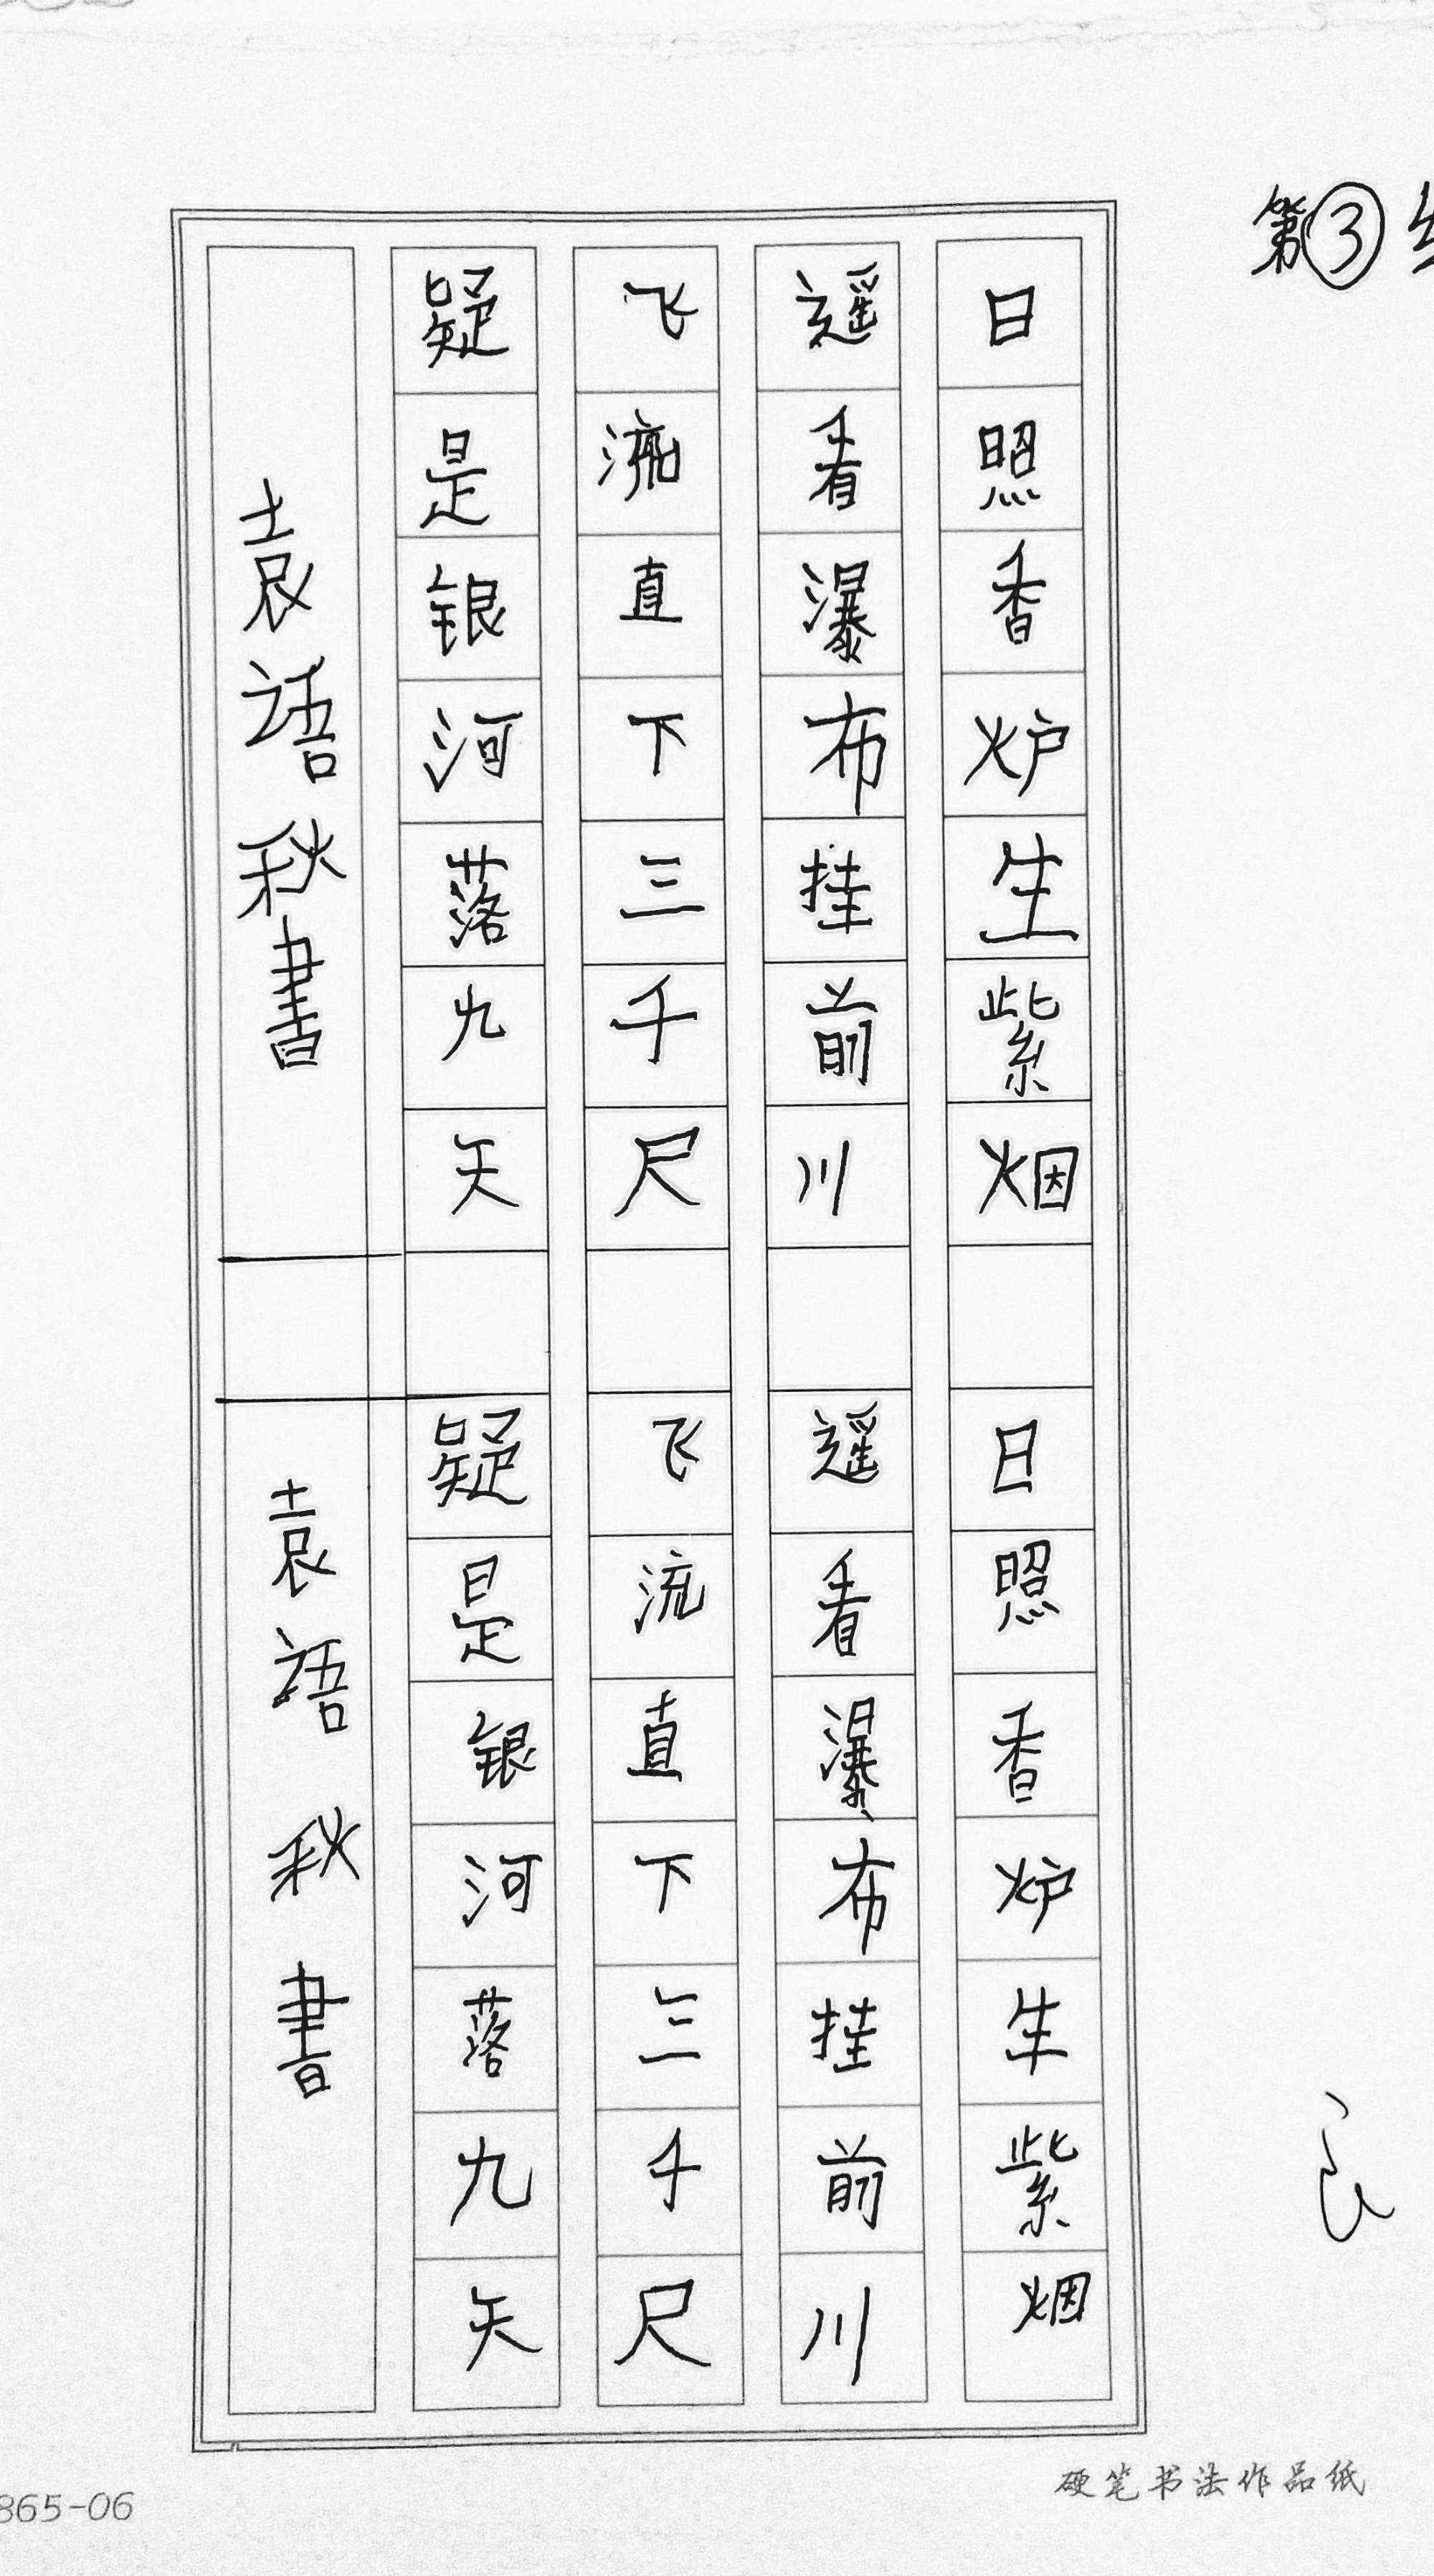 第③
日照香炉生紫烟
遥看瀑布挂前川
飞流直下三千尺
疑是银河落九天
袁语秋書
日照香炉生紫烟
遥看瀑布挂前川
飞流直下三千尺
疑是银河落九天
袁语秋書
良
865-06
硬笔书法作品纸